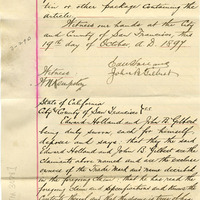 tin or other package containing the
article.
Witness our hands at the City
and County of San Francisco, this
19th day of October A.D. 1897.
John B. Gilbert
Witness
State of California
City & County of San Francisco } ss
Edward Holland and John B Gilbert
being duly sworn, each for himself,
deposes and says that they the said
Edward Holland and John B. Gilbert are the
claimants above named and are the exclusive
owners of the Trade Mark and name described
in the foregoing claim; that he has read the
foregoing claim and specifications and knows the